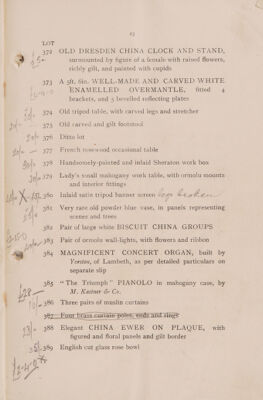 25
LOT
372 OLD DRESDEN CHINA CLOCK AND STAND,
surmounted by figure of a female with raised flowers,
richly gilt, and painted with cupids
373 A 5ft. 6in. WELL-MADE AND CARVED WHITE
ENAMELLED OVERMANTLE, fitted 4
brackets, and 5 bevelled reflecting plates
374 Old tripod table, with carved legs and stretcher
375 Old carved and gilt footstool
376 Ditto lot
377 French rosewood occasional table
378 Handsomely-painted and inlaid Sheraton work box
379 Lady's small mahogany work table, with ormolu mounts
and interior fittings
380 Inlaid satin tripod banner screen legs broken
381 Very rare old powder blue vase, in panels representing
scenes and trees
382 Pair of large white BISCUIT CHINA GROUPS
383 Pair of ormolu wall-lights, with flowers and ribbon
384 MAGNIFICENT CONCERT ORGAN, built by
of Lambeth, as per detailed particulars on
separate slip
£28 385 "The Triumph" PIANOLO in mahogany case, by
M. Kastner & Co.
386 Three pairs of muslin curtains
387 Four brass curtain poles, ends and rings
388 Elegant CHINA EWER ON PLAQUE, with
figured and floral panels and gilt border
389 English cut glass rose bowl